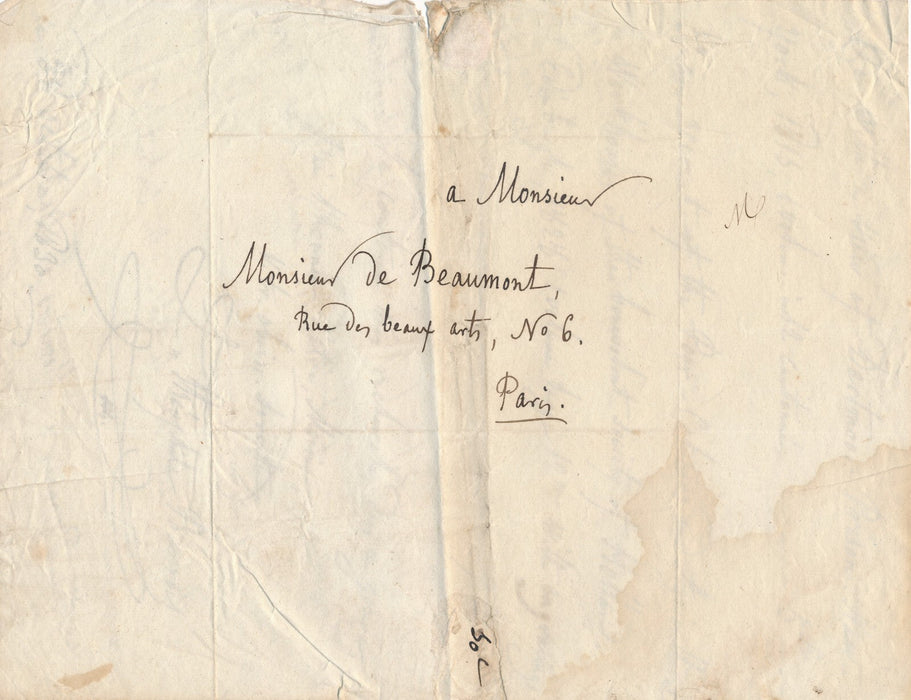 a Monsieur
M
Monsieur de Beaumont,
Rue des beaux arts, No 6.
Paris.